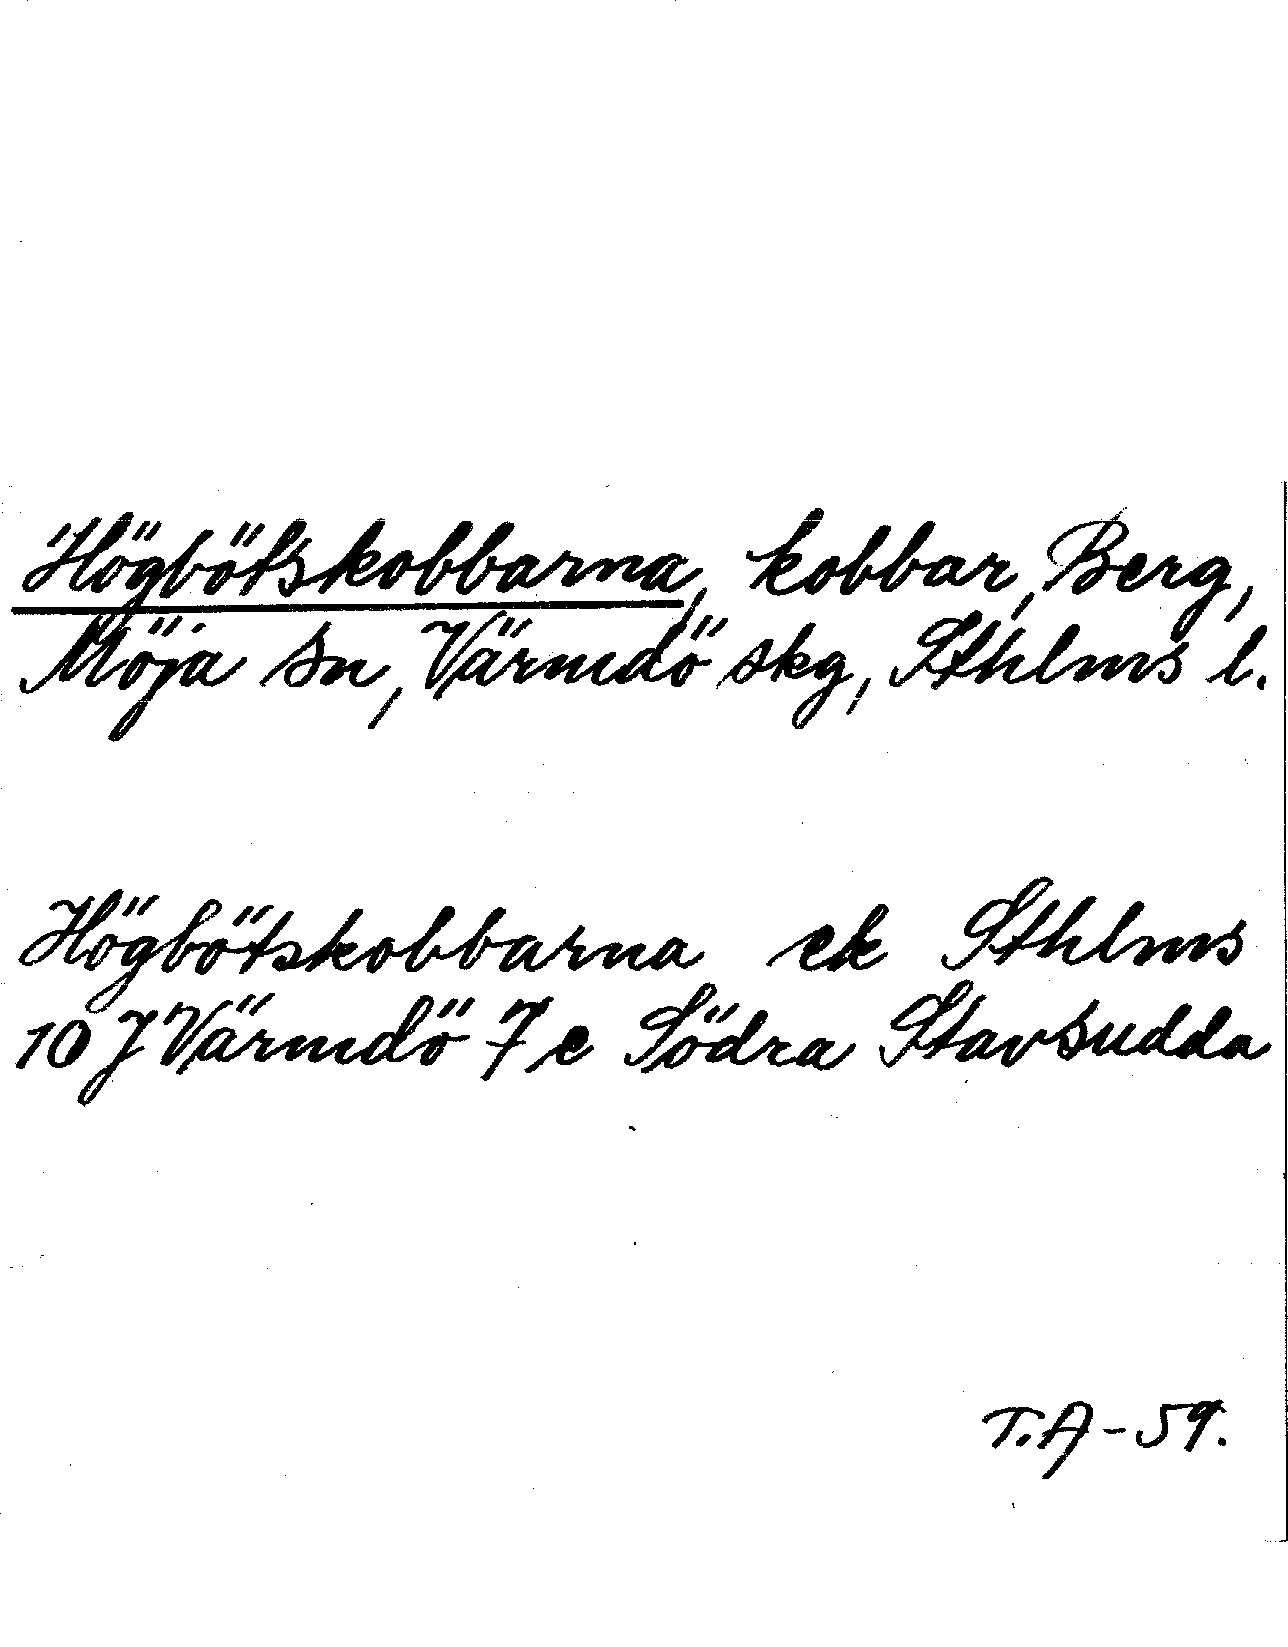 Högbötskobbarna, kobbar, Berg,
Möja sn, Värmdö skg, Sthlms l.
Högbötskobbarna ek Sthlms
10 J Värmdö 7 e Södra Stavsudda
T.A-59.